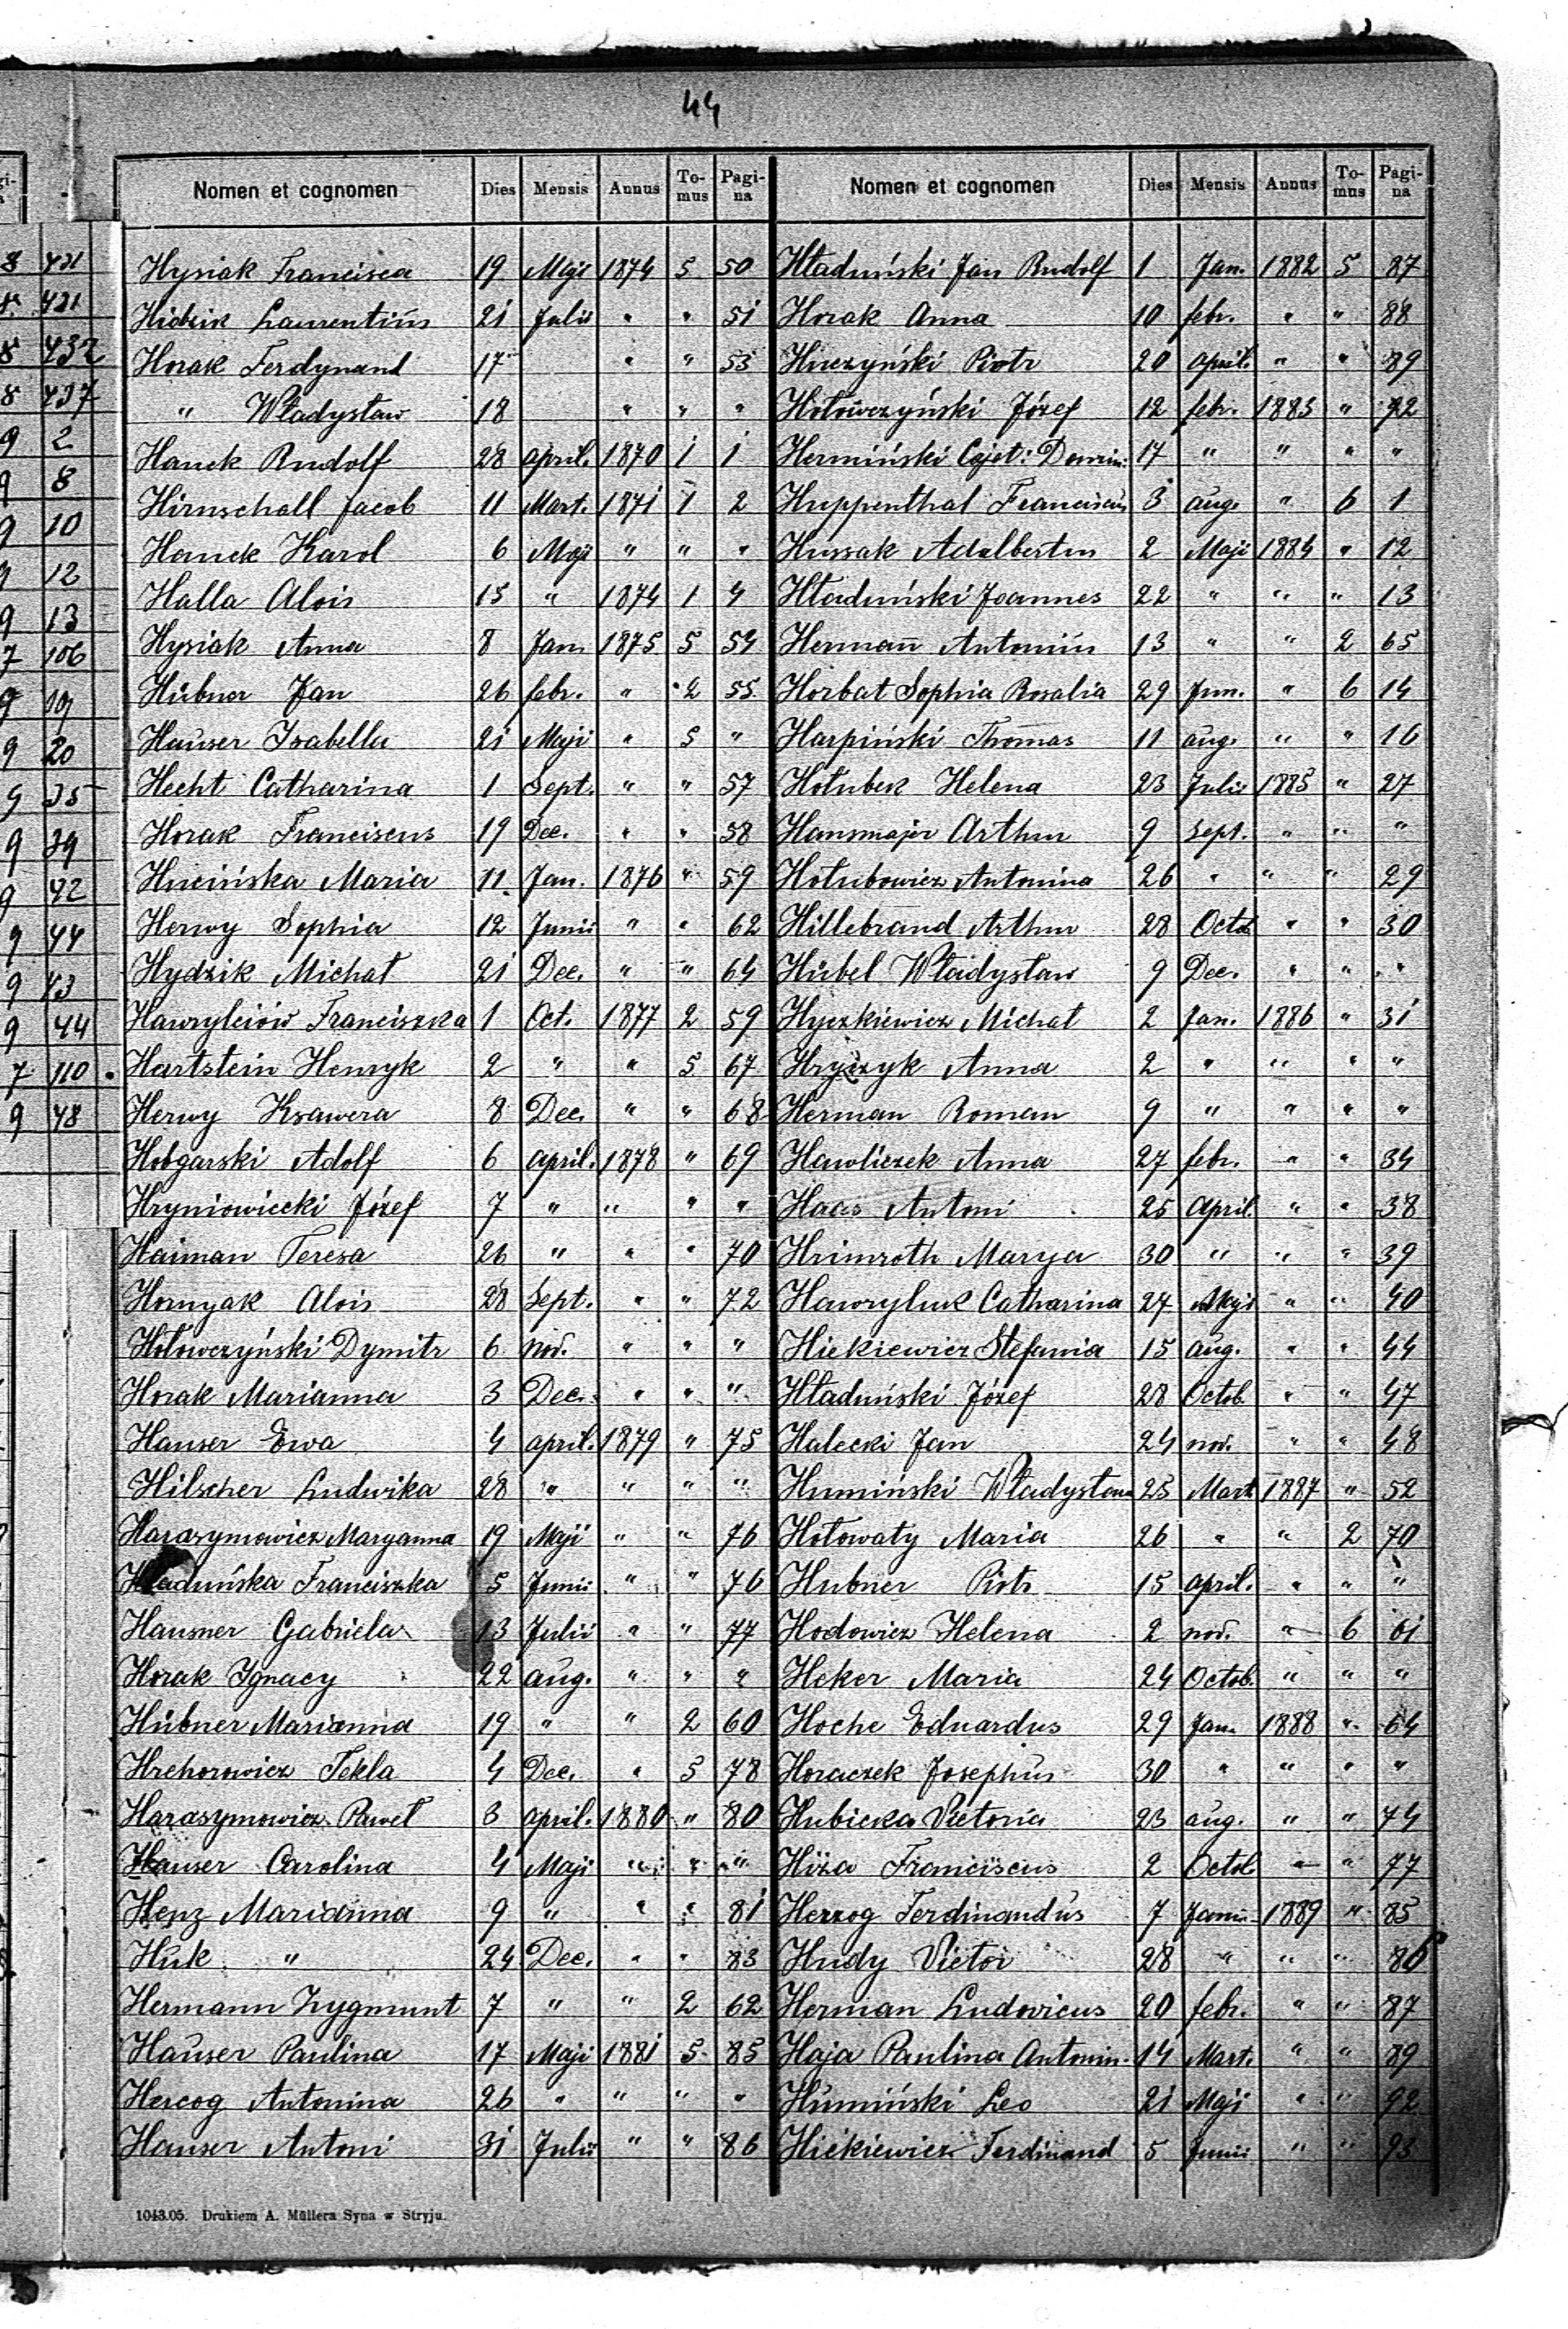 44
Nomen et cognomen Dies Mensis Annus To-mus Pagi-na
Hysiak Francisca 19 Maji 1874 5 50
Hidzik Laurentius 21 Julii " " 51
Horak Ferdynand 17 " " 53
" Władysław 18 " " "
Hanek Rudolf 28 april. 1870 1 1
Hirnschall Jacob 11 Mart. 1871 1 2
Hanek Karol 6 Maji " " "
Halla Alois 15 " 1874 1 4
Hysiak Anna 8 Jan. 1875 5 54
Hübner Jan 26 febr. " 2 55
Hauser Isabella 21 Maji " 5 "
Hecht Catharina 1 Sept. " " 57
Horak Franciscus 19 Dec. " " 58
Hucińska Maria 11 Jan. 1876 " 59
Herwy Sophia 12 Junii " " 62
Hydzik Michał 21 Dec. " " 64
Hawryleiów Franciszka 1 Oct. 1877 2 59
Hartstein Henryk 2 " " 5 67
Herwy Ksawera 8 Dec. " " 68
Hobgarski Adolf 6 april. 1878 " 69
Hryniowiecki Józef 7 " " " "
Haiman Teresa 26 " " " 70
Hornyak Alois 28 Sept. " " 72
Hołowczyński Dymitr 6 nov. " " "
Horak Marianna 3 Dec. " " "
Hauser Ewa 4 april. 1879 " 75
Hilscher Ludwika 28 " " " "
Harasymowicz Maryanna 19 Maji " " 76
Hładuńska Franciszka 5 Junii " " 76
Hausner Gabriela 13 Julii " " 77
Horak Ignacy 22 aug. " " "
Hübner Marianna 19 " " 2 60
Hrehorowicz Tekla 4 Dec. " 5 78
Harasymowicz Paweł 3 april. 1880 " 80
Hauser Carolina 4 Maji " " "
Henz Marianna 9 " " " 81
Huk " 24 Dec. " " 83
Hermann Zygmunt 7 " " 2 62
Hauser Paulina 17 Maji 1881 5 85
Hercog Antonina 26 " " " "
Hauser Antoni 31 Julii " " 86
1043.05. Drukiem A. Müllera Syna w Stryju.
Nomen et cognomen Dies Mensis Annus To-mus Pagi-na
Hładuński Jan Rudolf 1 Jan. 1882 5 87
Horak Anna 10 febr. " " 88
Huczyński Piotr 20 april. " " 89
Hołowczyński Józef 12 febr. 1883 " 92
Hermiński Cajet: 17 " " " "
Huppenthal Franciscus 3 aug. " 6 1
Hussak Adalbertus 2 Maji 1884 " 12
Hładuński Joannes 22 " " " 13
Hermann Antonius 13 " " 2 65
Horbat Sophia Rosalia 29 Jun. " 6 14
Harpiński Thomas 11 aug. " " 16
Hołubek Helena 23 Julii 1885 " 27
Hansmajer Arthur 9 Sept. " " "
Hołubowicz Antonina 26 " " " 29
Hillebrand Arthur 28 Octob " " 30
Hübel Władysław 9 Dec. " " "
Hyczkiewicz Michał 2 Jan. 1886 " 31
Hryczyk Anna 2 " " " "
Herman Roman 9 " " " "
Hawliczek Anna 27 febr. " " 34
Haas Antoni 25 April. " " 38
Heimroth Marya 30 " " " 39
Hawryluk Catharina 27 Maji " " 40
Hickiewicz Stefania 15 aug. " " 44
Hładuński Józef 28 Octob. " " 47
Halecki Jan 24 nov. " " 48
Humiński Władysław 25 Mart. 1887 " 52
Hołowaty Maria 26 " " 2 70
Hubner Piotr 15 april. " " "
Hodowicz Helena 2 nov. " 6 61
Heker Maria 24 Octob. " " "
Hoche Eduardus 29 Jan. 1888 " 64
Horaczek Josephus 30 " " " "
Hubicka Victoria 23 aug. " " 74
Hiża Franciscus 2 Octob " " 77
Herzog Ferdinandus 7 1889 " 85
Hudy Victor 28 " " " 86
Herman Ludovicus 20 febr. " " 87
Haja Paulina Antonin. 14 Mart. " " 89
Humiński Leo 21 Maji " " 92
Hickiewicz Ferdinand 5 Junii " " 93
8 421
8 421
8 432
8 437
9 2
9 8
9 10
9 12
9 13
7 106
9 19
9 20
9 35
9 39
9 42
9 44
9 43
9 44
7 110
9 48